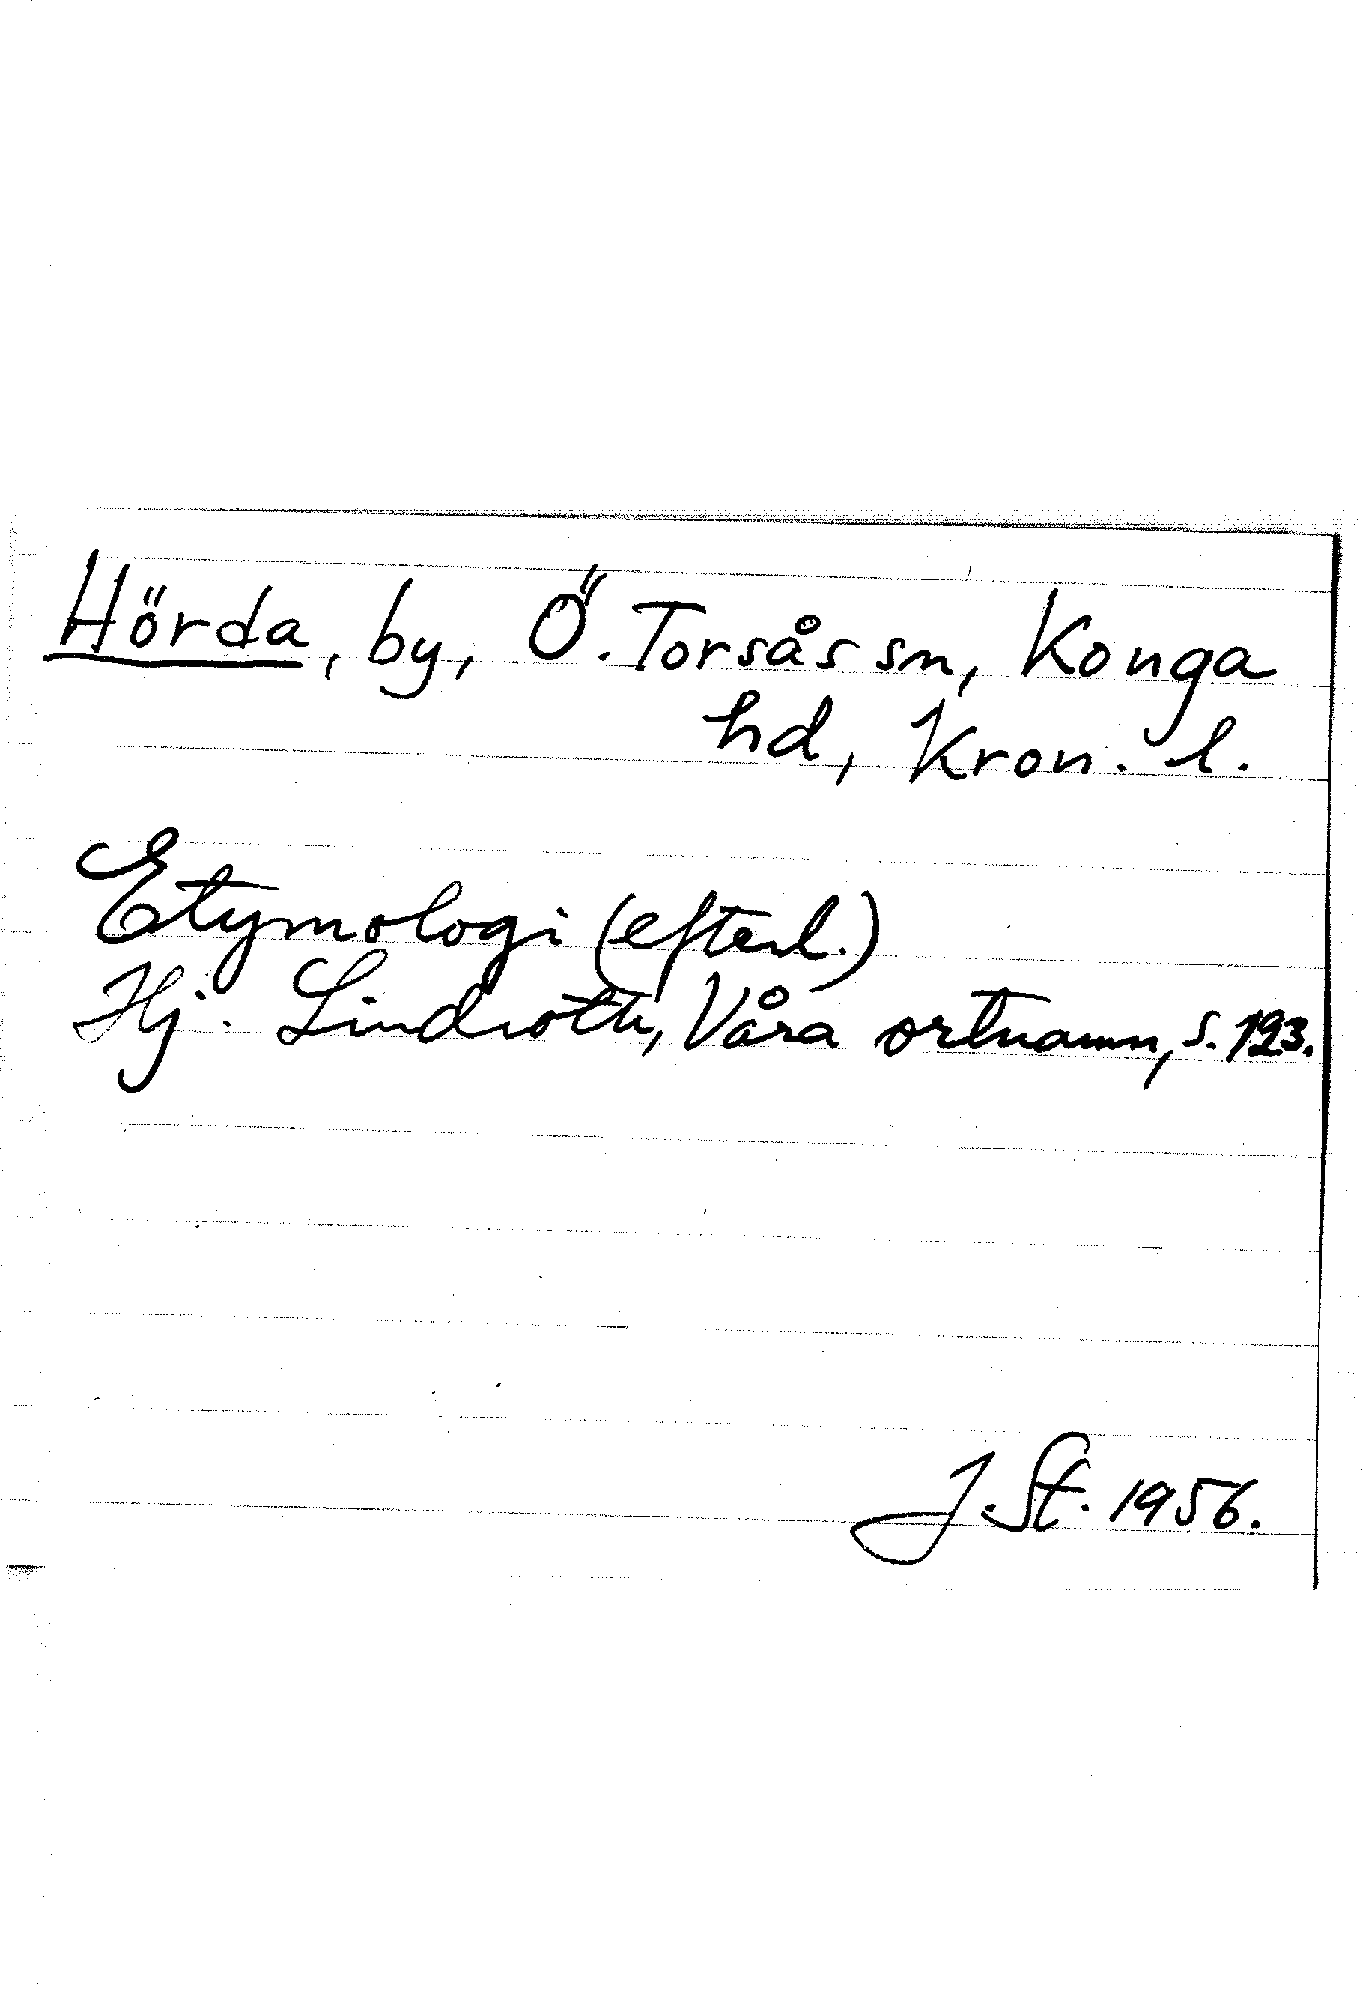 Hörda, by, Ö. Torsås sn, Konga
hd, Kron. l.
Etymologi (efterl.)
Hj. Lindroth, Våra ortnamn, s. 193.
J. St. 1956.